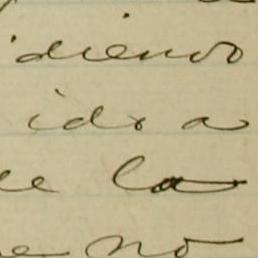 idiendo
ido a
ue la
no